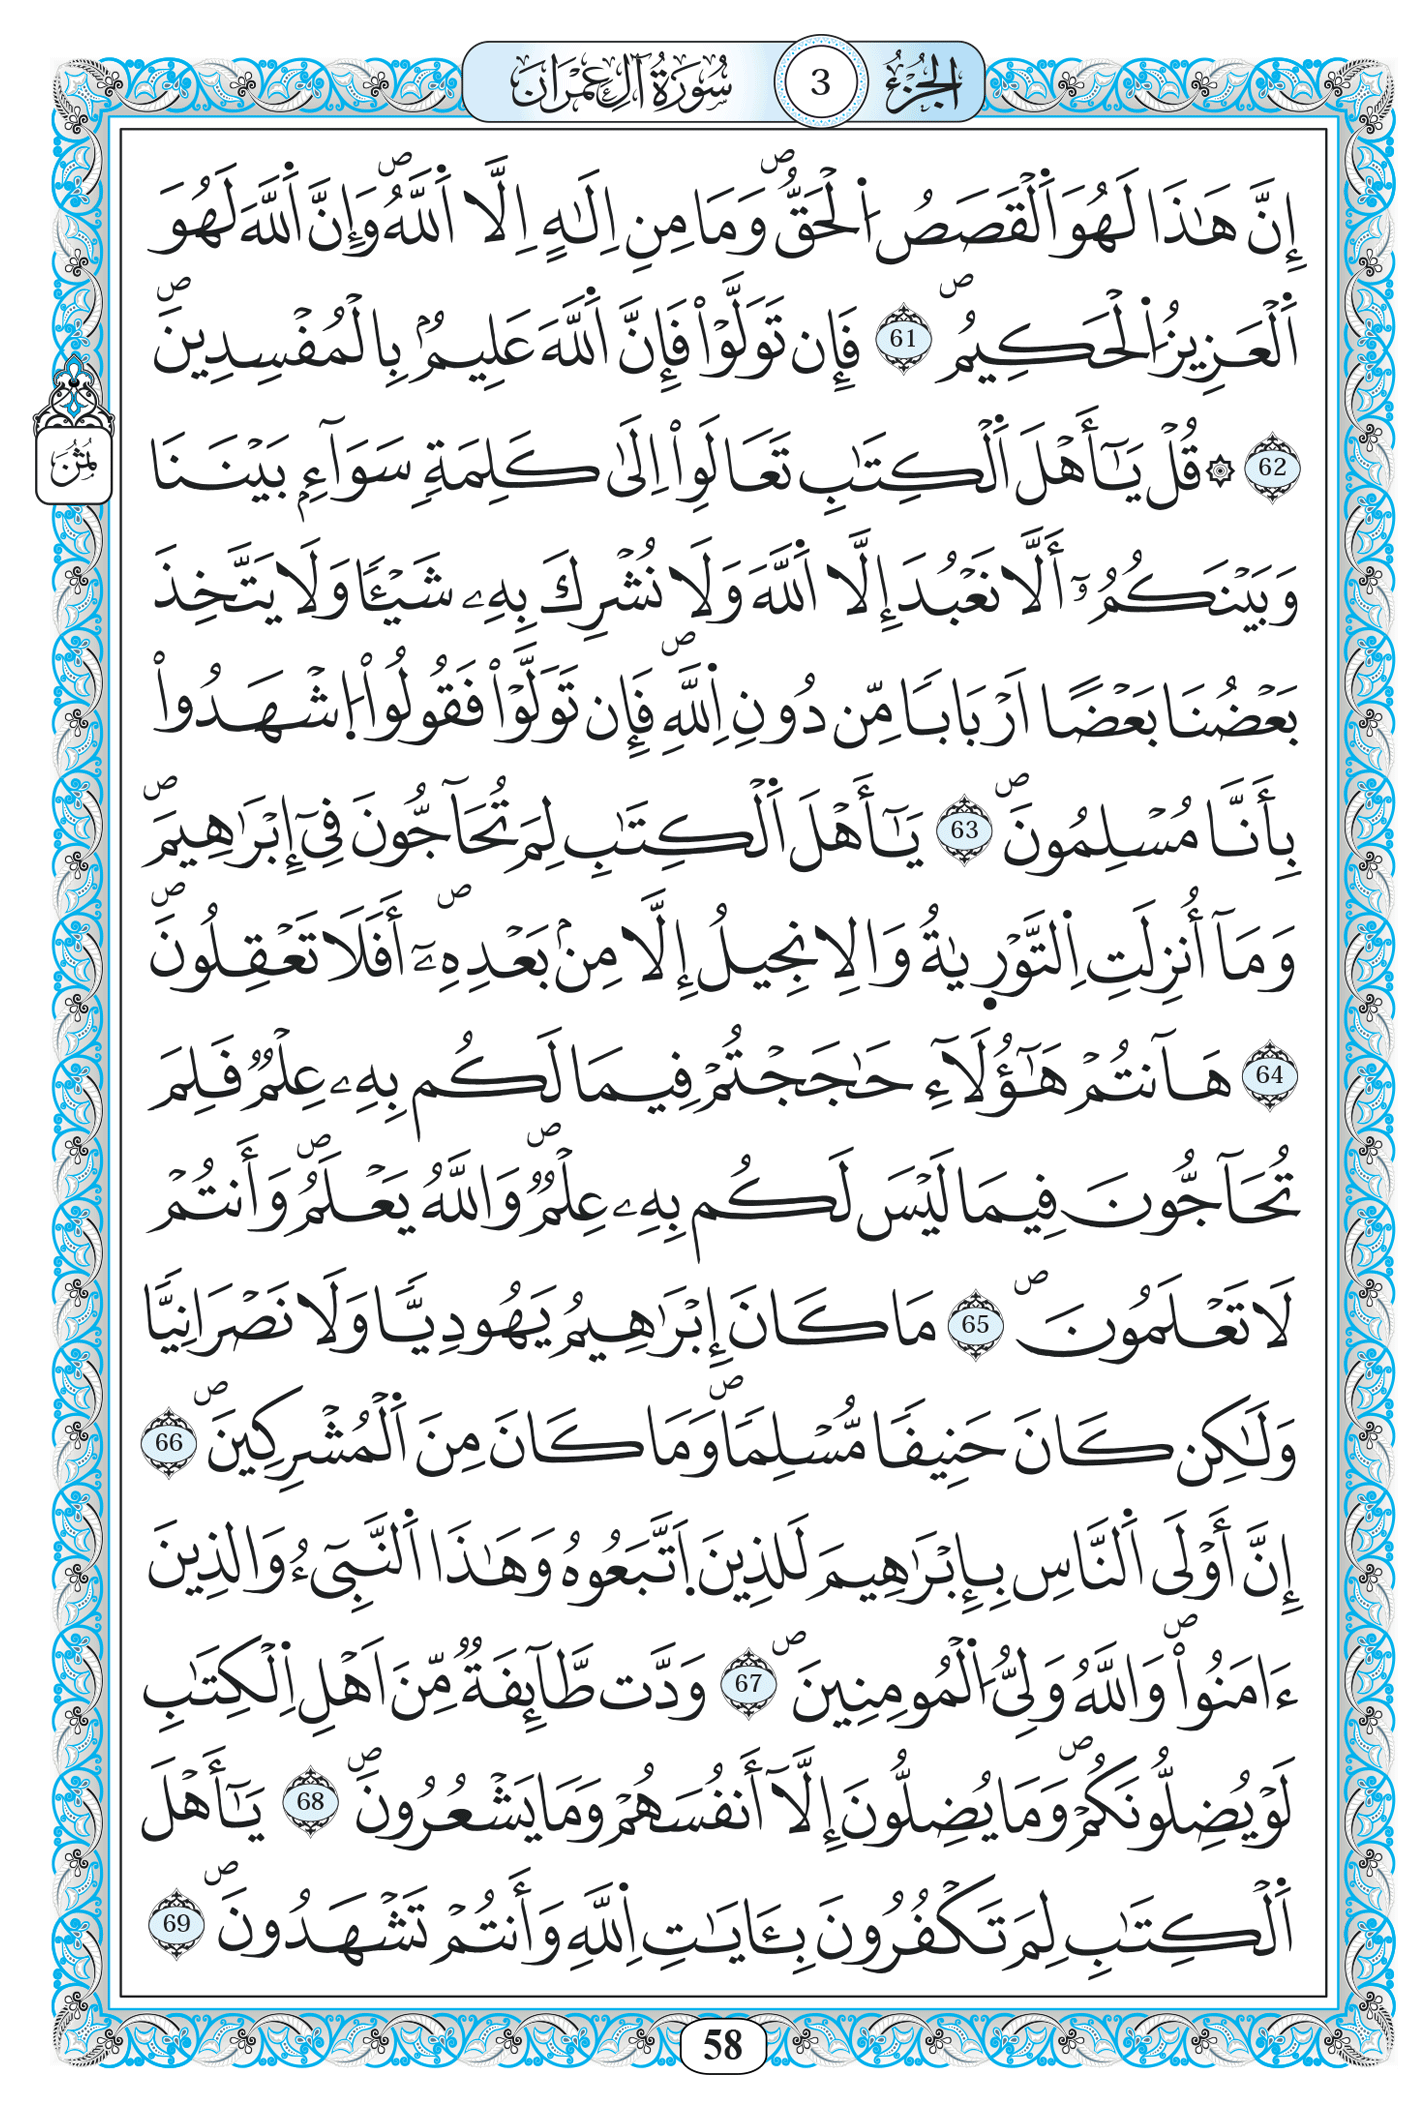 الجزء 3 سورة آل عمران
إِنَّ هَٰذَا لَهُوَ اَ۬لْقَصَصُ اُ۬لْحَقُّۖ وَمَا مِنِ اِلَٰهٍ اِلَّا اَ۬للَّهُۖ وَإِنَّ اَ۬للَّهَ لَهُوَ
اَ۬لْعَزِيزُ اُ۬لْحَكِيمُۖ 61 فَإِن تَوَلَّوْاْ فَإِنَّ اَ۬للَّهَ عَلِيمُۢ بِالْمُفْسِدِينَۖ
62 ۞ قُلْ يَٰٓأَهْلَ اَ۬لْكِتَٰبِ تَعَالَوِاْ اِلَىٰ كَلِمَةٖ سَوَآءِۢ بَيْنَنَا
وَبَيْنَكُمُۥٓ أَلَّا نَعْبُدَ إِلَّا اَ۬للَّهَ وَلَا نُشْرِكَ بِهِۦ شَيْـٔٗا وَلَا يَتَّخِذَ
بَعْضُنَا بَعْضًا اَرْبَابٗا مِّن دُونِ اِ۬للَّهِۖ فَإِن تَوَلَّوْاْ فَقُولُواْ اُ۪شْهَدُواْ
بِأَنَّا مُسْلِمُونَۖ 63 يَٰٓأَهْلَ اَ۬لْكِتَٰبِ لِمَ تُحَآجُّونَ فِےٓ إِبْرَٰهِيمَۖ
وَمَآ أُنزِلَتِ اِ۬لتَّوْر۪يٰةُ وَالِانجِيلُ إِلَّا مِنۢ بَعْدِهِۦٓۖ أَفَلَا تَعْقِلُونَۖ
64 هَآنتُمْ هَٰٓؤُلَآءِ حَٰجَجْتُمْ فِيمَا لَكُم بِهِۦ عِلْمٞ فَلِمَ
تُحَآجُّونَ فِيمَا لَيْسَ لَكُم بِهِۦ عِلْمٞۖ وَاللَّهُ يَعْلَمُۖ وَأَنتُمْ
لَا تَعْلَمُونَۖ 65 مَا كَانَ إِبْرَٰهِيمُ يَهُودِيّٗا وَلَا نَصْرَانِيّٗا
وَلَٰكِن كَانَ حَنِيفٗا مُّسْلِمٗاۖ وَمَا كَانَ مِنَ اَ۬لْمُشْرِكِينَۖ 66
إِنَّ أَوْلَى اَ۬لنَّاسِ بِإِبْرَٰهِيمَ لَلذِينَ اَ۪تَّبَعُوهُ وَهَٰذَا اَ۬لنَّبِےٓءُ وَالذِينَ
ءَامَنُواْۖ وَاللَّهُ وَلِيُّ اُ۬لْمُومِنِينَۖ 67 وَدَّت طَّآئِفَةٞ مِّنَ اَهْلِ اِ۬لْكِتَٰبِ
لَوْ يُضِلُّونَكُمْۖ وَمَا يُضِلُّونَ إِلَّآ أَنفُسَهُمْ وَمَا يَشْعُرُونَۖ 68 يَٰٓأَهْلَ
اَ۬لْكِتَٰبِ لِمَ تَكْفُرُونَ بِـَٔايَٰتِ اِ۬للَّهِ وَأَنتُمْ تَشْهَدُونَۖ 69
ثُمُن
58